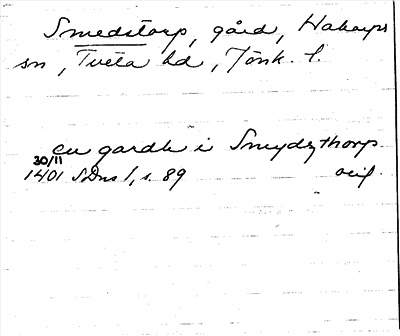 Smedstorp, gård, Hakarps
sn, Tveta hd, Jönk. l.
en gardh i Smydzthorp
30/11
1401 SDns 1, s. 89 orig.